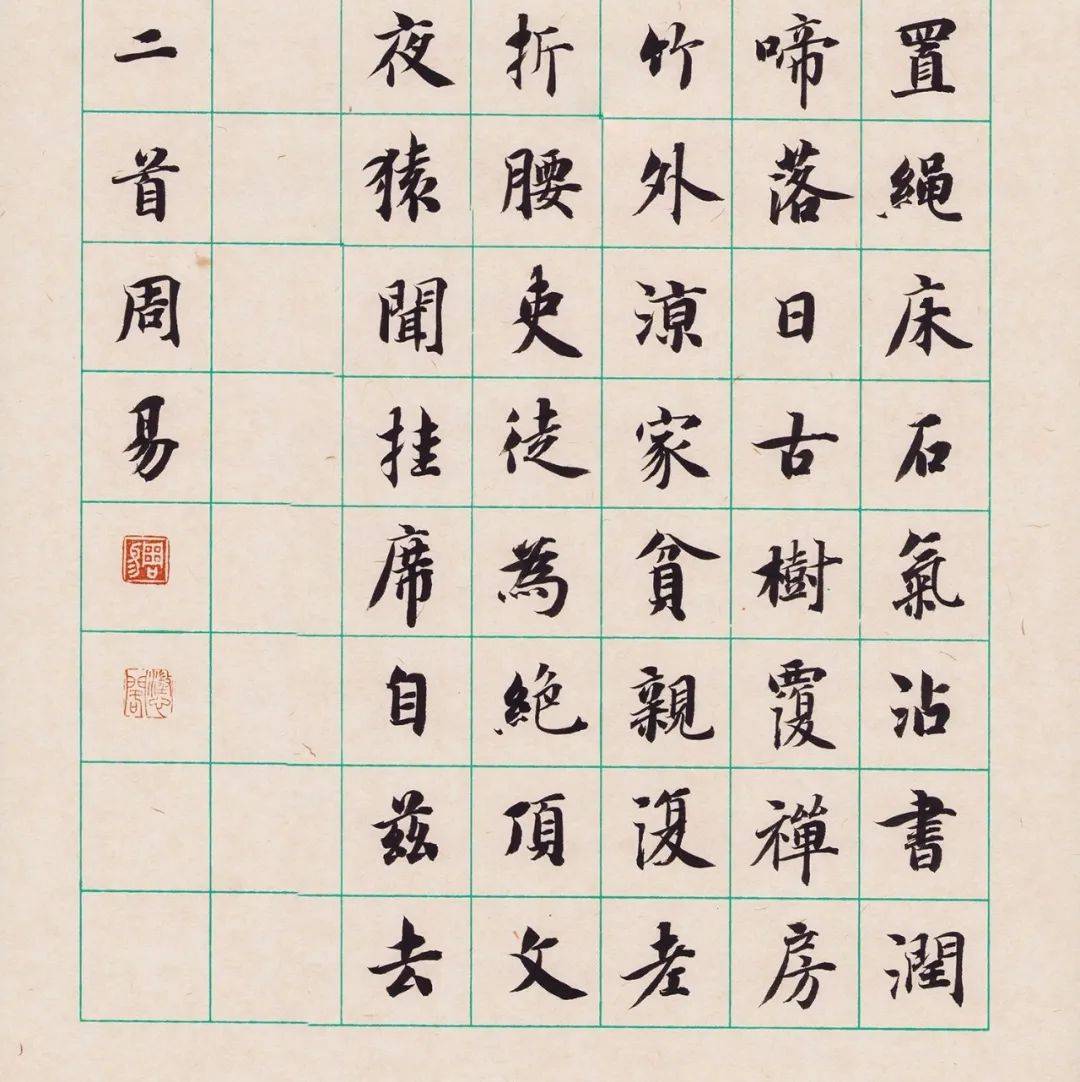 置繩床石氣沾書潤
啼落日古樹覆禪房
竹外涼家貧親復老
折腰吏徒為絕頂文
夜猿聞挂席自茲去
二首周易